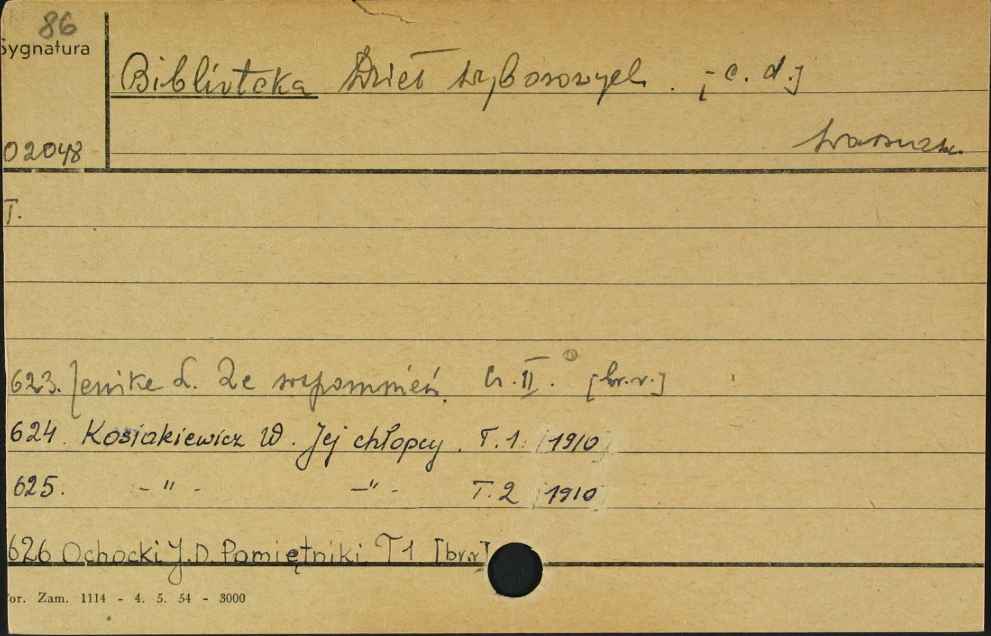 86
Sygnatura
Biblioteka Dzieł wyborowych. [c. d.]
02048
Warszawa
T.
623. Jenike L. Ze wspomnień. Cz. II. [br.r.]
624. Kosiakiewicz W. Jej chłopcy. T. 1. 1910
625. -"- -"- T. 2 1910
626 Ochocki J. D. Pamiętniki T 1 [br.r]
or. Zam. 1114 - 4. 5. 54 - 3000